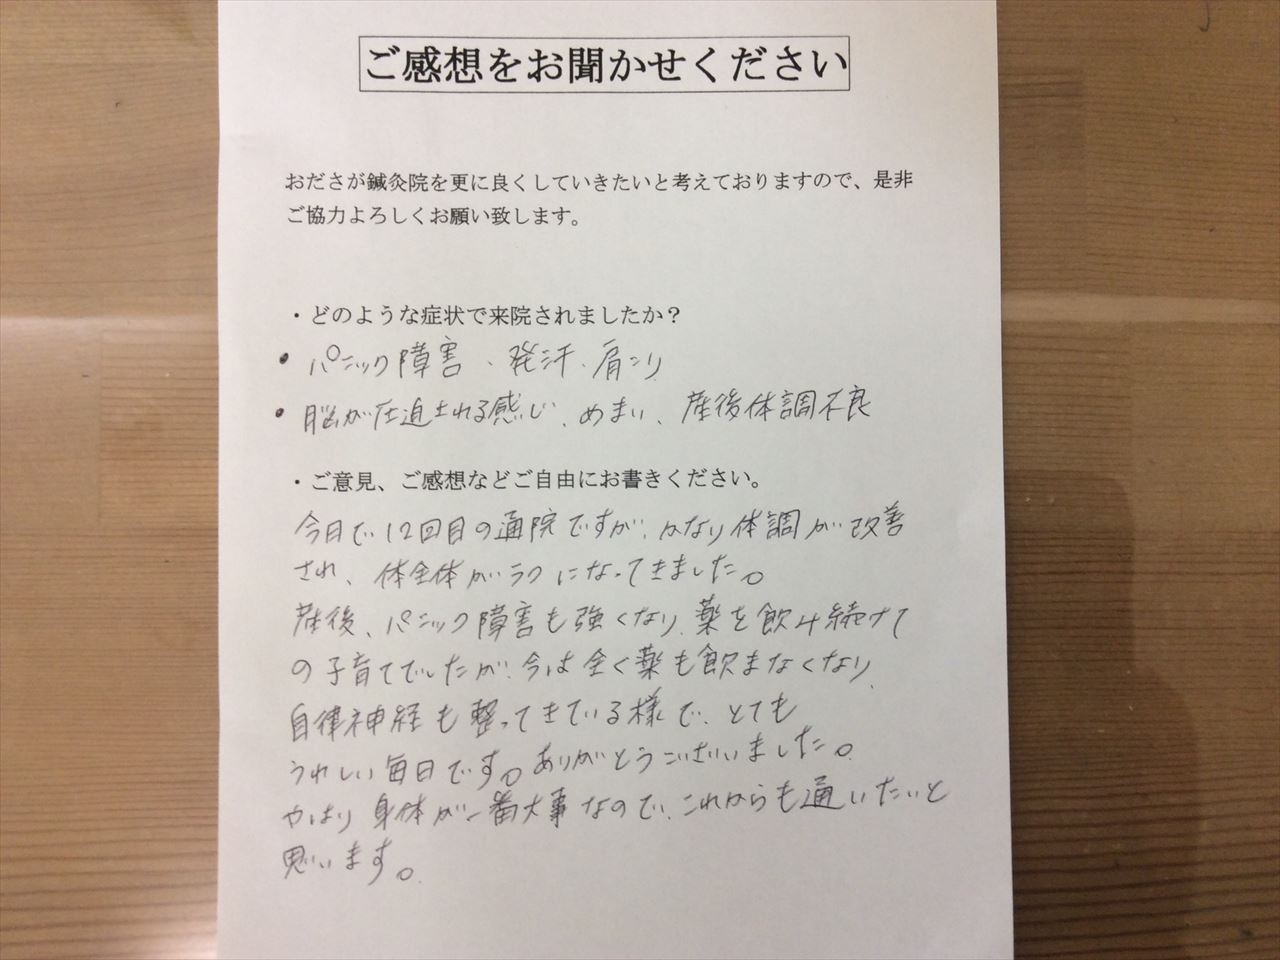 ご感想をお聞かせください
おださが鍼灸院を更に良くしていきたいと考えておりますので、是非
ご協力よろしくお願い致します。
・どのような症状で来院されましたか？
• パニック障害、発汗、肩こり
• 脳が圧迫される感じ、めまい、産後体調不良
・ご意見、ご感想などご自由にお書きください。
今日で12回目の通院ですが、かなり体調が改善
され、体全体がラクになってきました。
産後、パニック障害も強くなり、薬を飲み続けて
の子育てでしたが、今は全く薬も飲まなくなり、
自律神経も整ってきている様で、とても
うれしい毎日です。ありがとうございました。
やはり身体が一番大事なので、これからも通いたいと
思います。